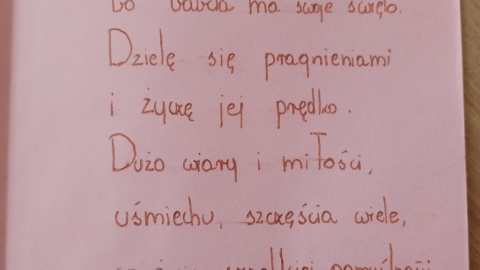 bo babcia ma swoje święto.
Dzielę się pragnieniami
i życzę jej prędko.
Dużo wiary i miłości,
uśmiechu, szczęścia wiele,
wszelkiej pomyślności